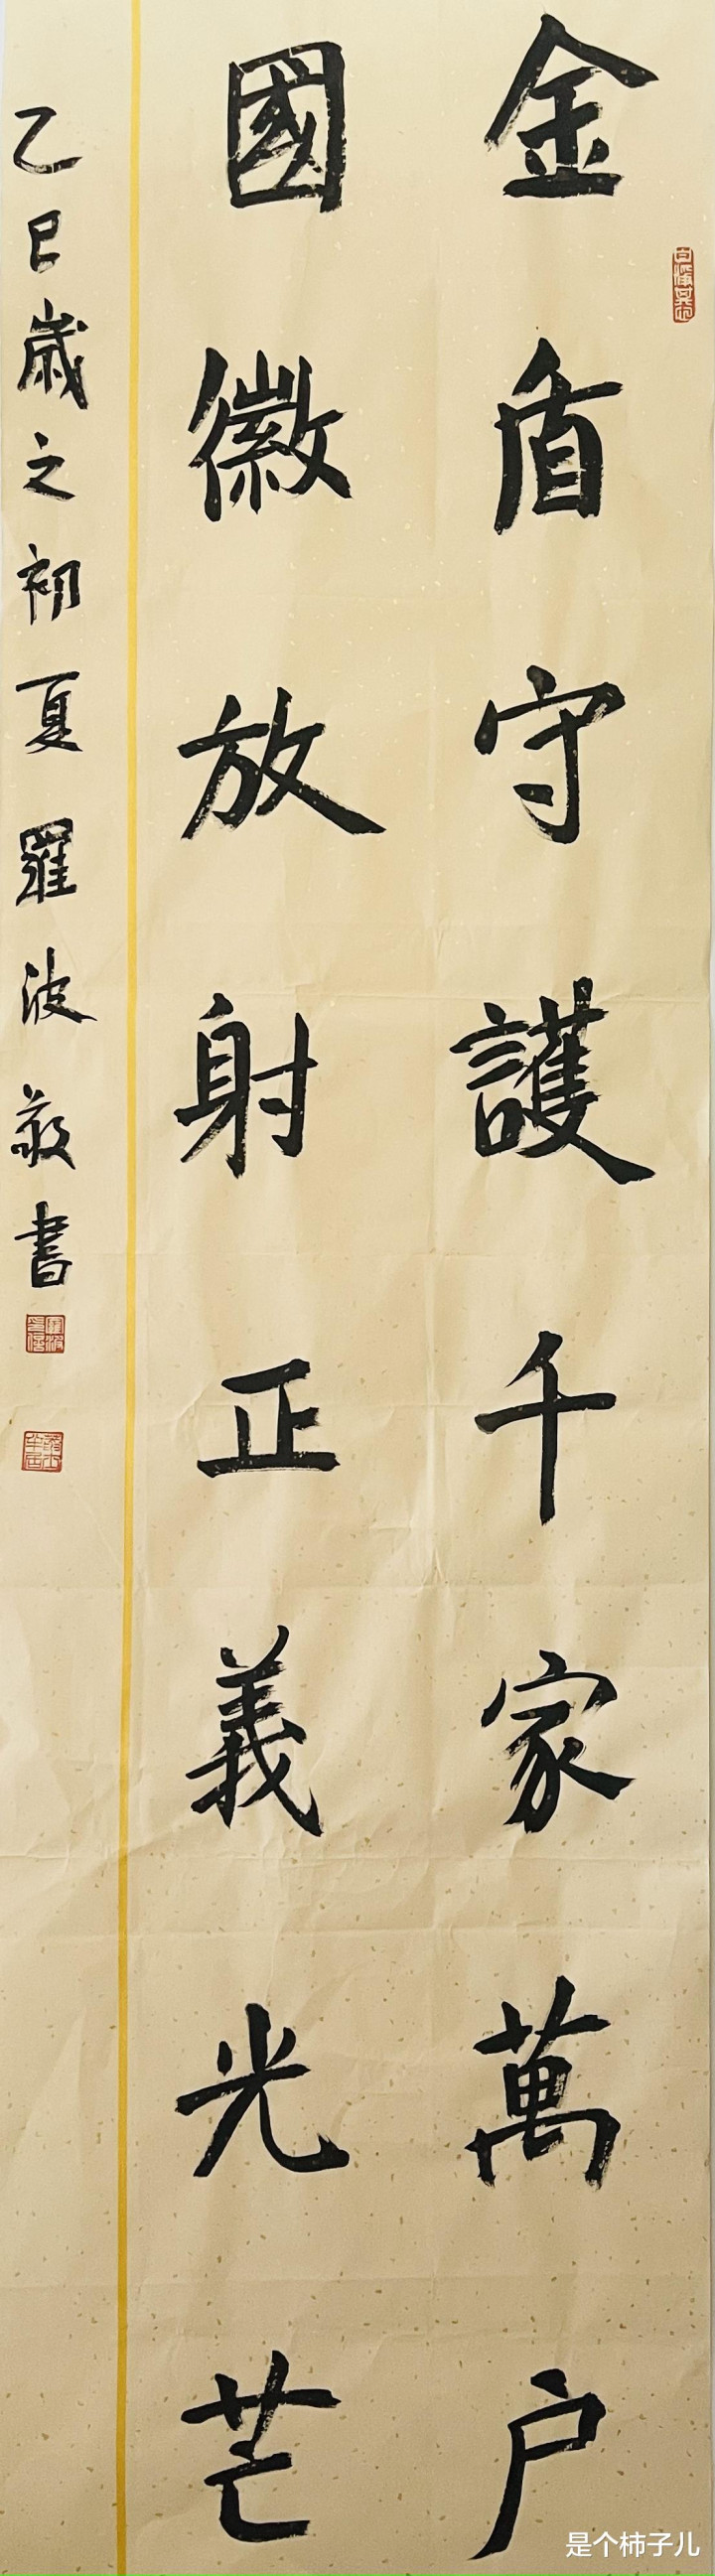 金盾守護千家萬户
國徽放射正義光芒
乙巳歲之初夏羅波敬書
是个柿子儿